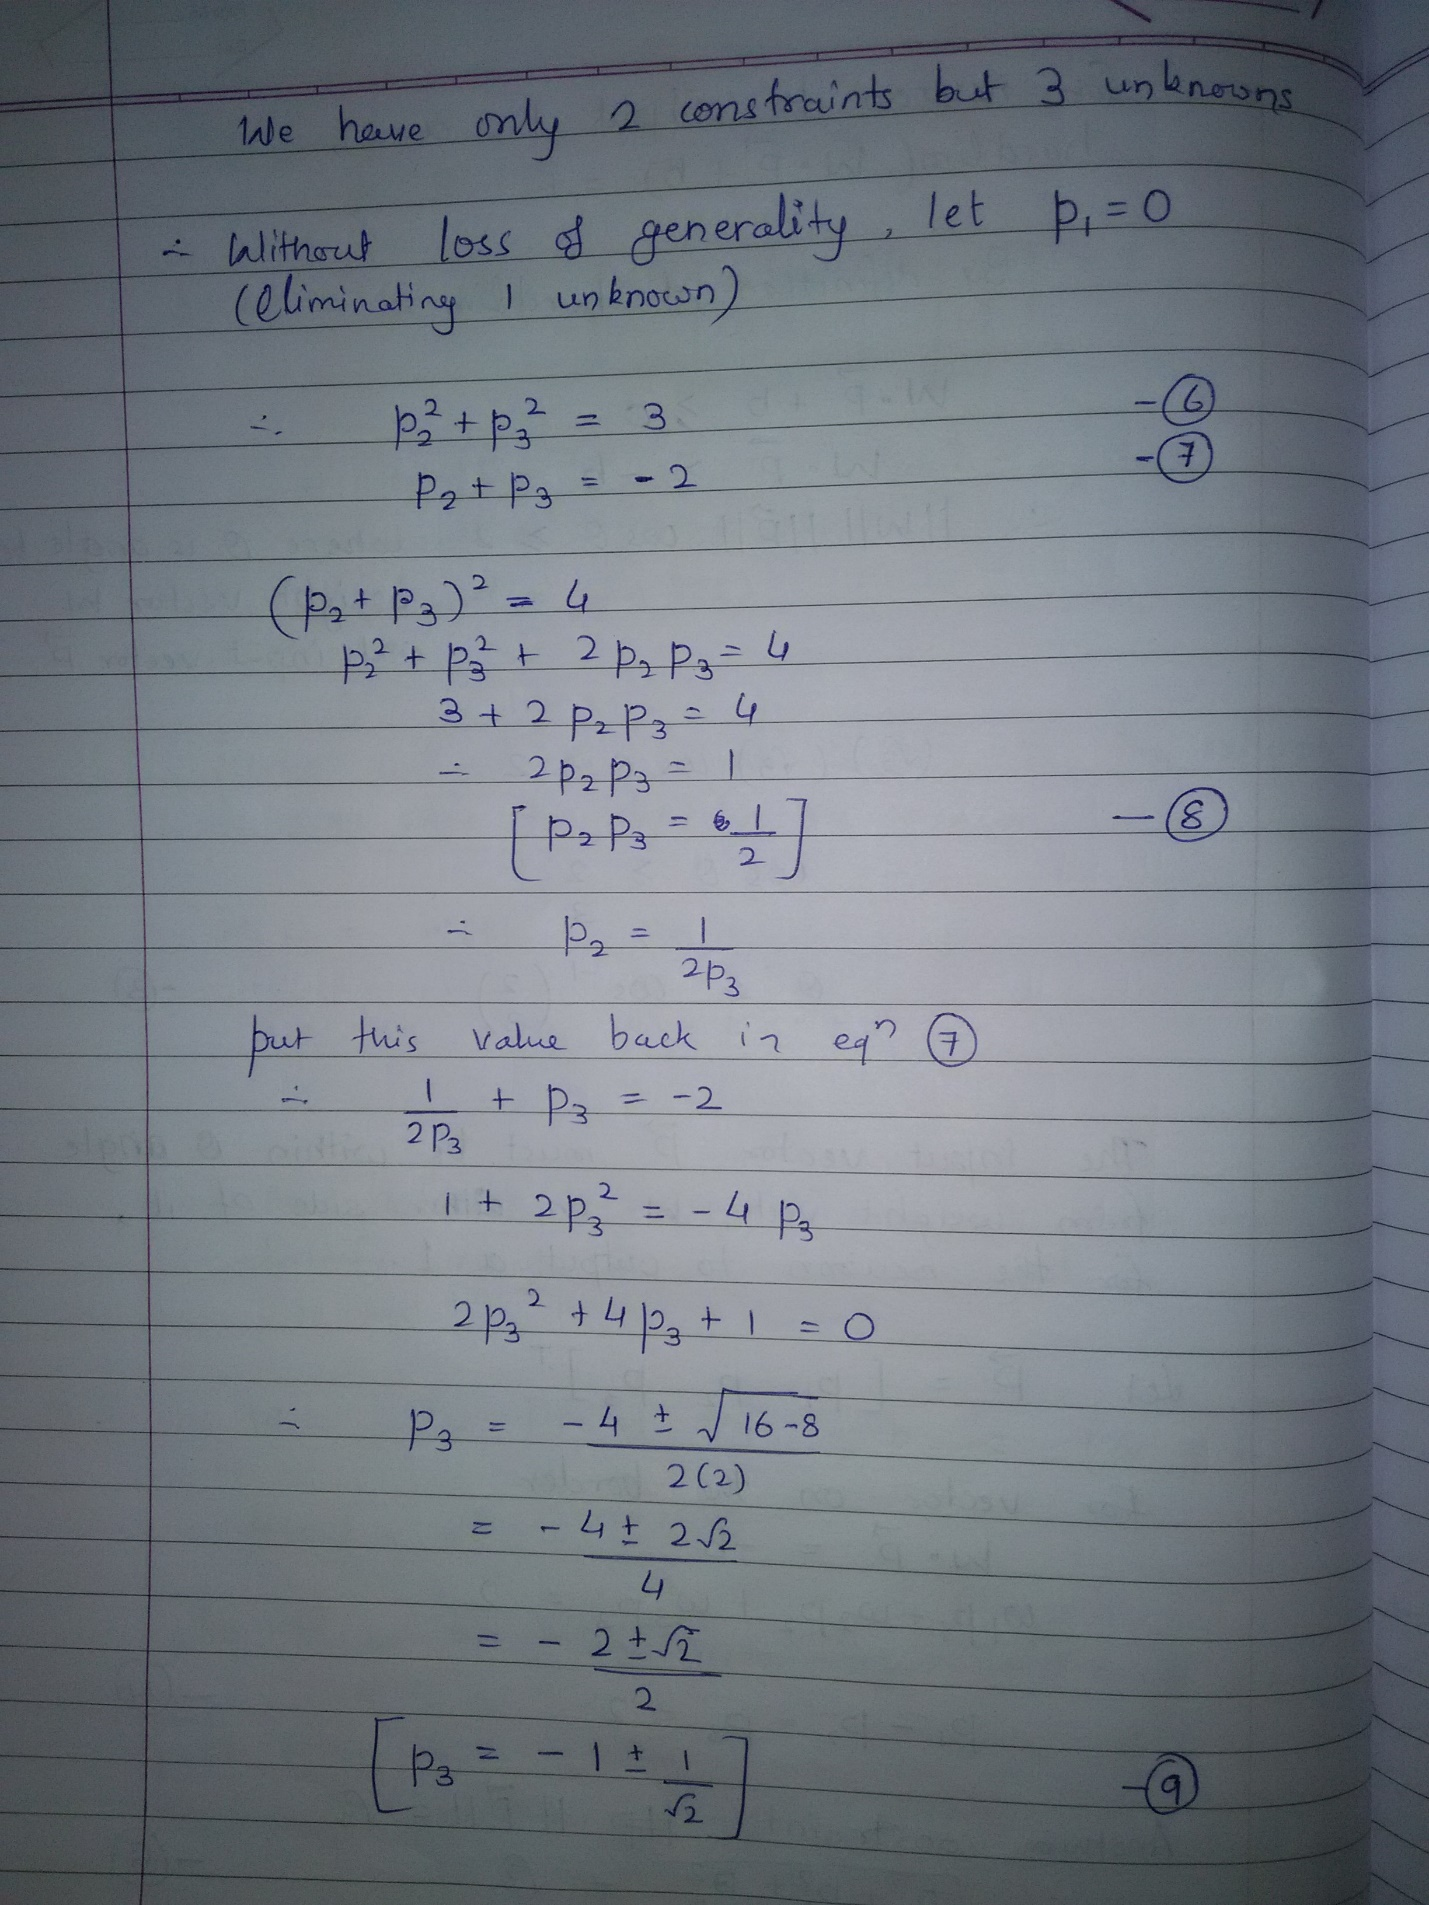 We have only 2 constraints but 3 unknowns
∴ Without loss of generality, let p₁ = 0
(eliminating 1 unknown)
∴ p₂² + p₃² = 3 - ⑥
p₂ + p₃ = -2 - ⑦
(p₂ + p₃)² = 4
p₂² + p₃² + 2 p₂ p₃ = 4
3 + 2 p₂ p₃ = 4
∴ 2 p₂ p₃ = 1
[ p₂ p₃ = 1/2 ] - ⑧
∴ p₂ = 1/2p₃
put this value back in eqⁿ ⑦
∴ 1/2p₃ + p₃ = -2
1 + 2p₃² = -4 p₃
2p₃² + 4p₃ + 1 = 0
∴ p₃ = -4 ± √16-8 / 2(2)
= -4 ± 2√2 / 4
= - 2 ± √2 / 2
[ p₃ = -1 ± 1/√2 ] - ⑨